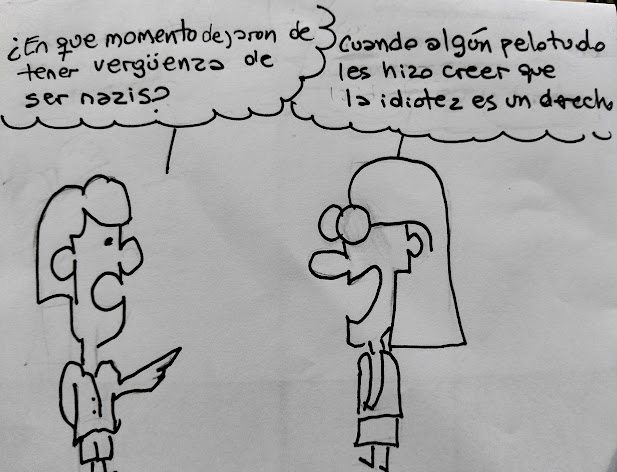 ¿En que momento dejaron de
tener vergüenza de
ser nazis?
Cuando algún pelotudo
les hizo creer que
la idiotez es un derecho